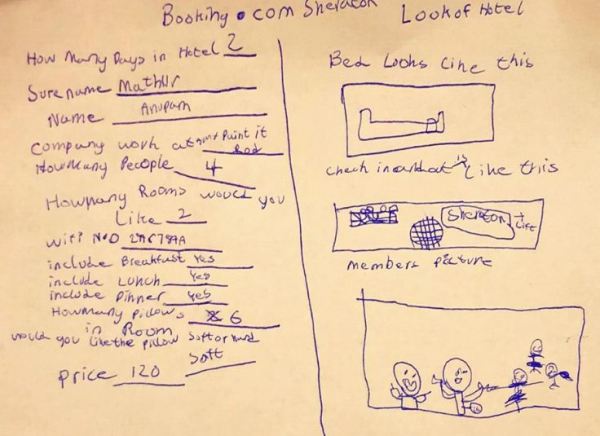 Booking.com Sheraton
How Many Days in Hotel 2
Surename Mathur
Name Anupam
Company work at Paint it
Red
HowMany People 4
Howmany Rooms would you
Like 2
wifi No
include Breakfust Yes
include Lunch Yes
include Dinner Yes
Howmany pillows 6
in Room
would you like the pillow soft or hard
Soft
Price 120
Look of Hotel
Bed Looks Like this
check in
is Like this
Sheraton
Lift
members picture